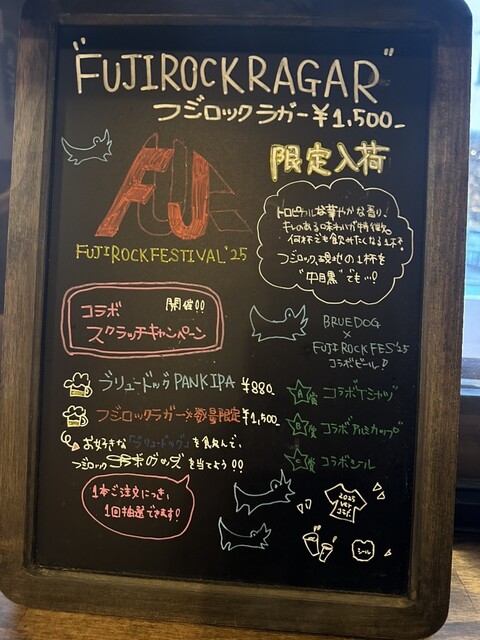 "FUJIROCKRAGAR"
フジロックラガー¥1,500-
限定入荷
FUJI
FUJIROCKFESTIVAL'25
トロピカルな華やかな香り、
キレのある味わいが特徴的
何杯でも飲みたくなる1本!
フジロック現地の1杯を
"中目黒"でも…!
コラボ 開催!!
スクラッチキャンペーン
BRUEDOG
×
FUJI ROCKFES'25
コラボビール♪
ブリュードッグPANKIPA ¥880-
フジロックラガー※数量限定 ¥1,500-
お好きな「ブリュードッグ」を飲んで、
フジロックコラボグッズを当てよう!!
1本ご注文につき、
1回抽選できます!
A賞 コラボTシャツ
B賞 コラボアルミカップ
C賞 コラボシール
2025
シール